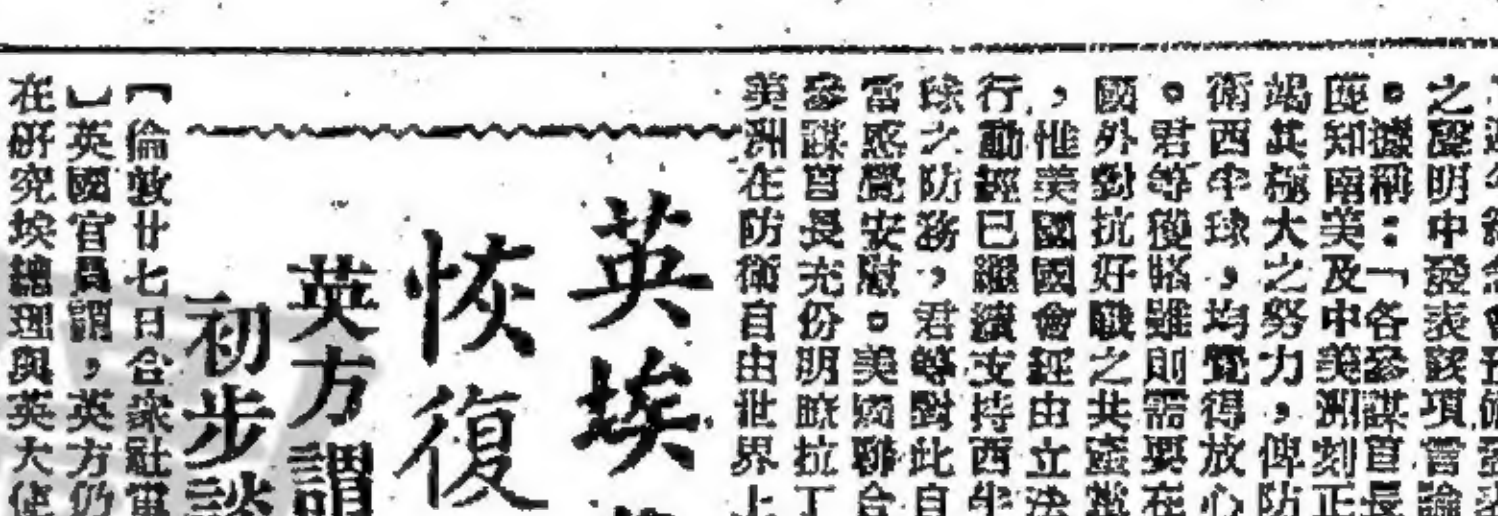 之聲明中發表該項言論
。據稱：「各參謀首長
知南美及中美洲刻正
竭其極大之努力，俾防
衛西半球，均覺得放心
。君等雖則需要在
國外對抗好戰之共產黨
，惟美國國會經由立法
行動經已繼續支持西半
球之防務，君等對此自
當感覺安慰。美國聯合
參謀首長充份明瞭拉丁
美洲在防衛自由世界上
英埃
恢復
英方謂
初步談
【倫敦廿七日合衆社電
】英國官員謂，英方仍
在研究埃總理與英大使